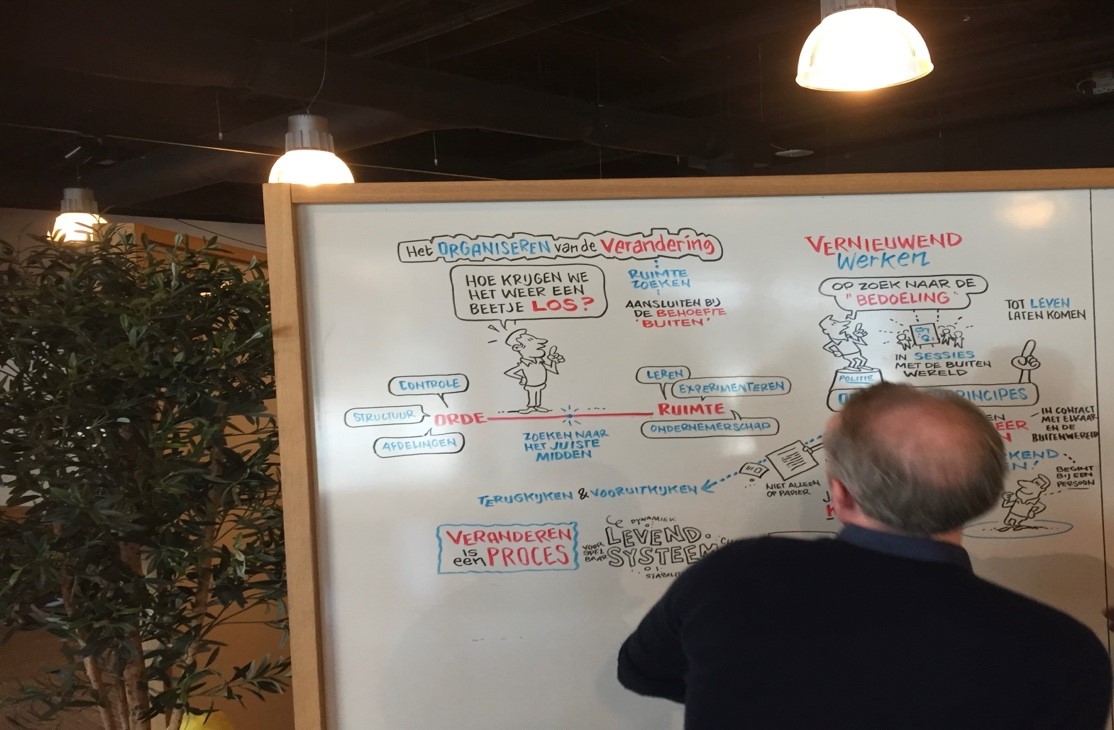 Het ORGANISEREN van de Verandering
HOE KRIJGEN WE
HET WEER EEN
BEETJE LOS?
RUIMTE
ZOEKEN
AANSLUITEN BIJ
DE BEHOEFTE
"BUITEN"
CONTROLE
STRUCTUUR
AFDELINGEN
ORDE
LEREN
EXPERIMENTEREN
RUIMTE
ONDERNEMERSCHAP
ZOEKEN NAAR
HET JUISTE
MIDDEN
TERUGKIJKEN & VOORUITKIJKEN
VERANDEREN
IS
een PROCES
DYNAMIEK
LEVEND
SYSTEEM
VERNIEUWEND
Werken
OP ZOEK NAAR DE
"BEDOELING"
TOT LEVEN
LATEN KOMEN
IN SESSIES
MET DE BUITEN
WERELD
POLITIE
IN CONTACT
MET ELKAAR
EN DE
BUITENWERELD
NIET ALLEEN
OP PAPIER
BEGINT
BIJ EEN
PERSOON